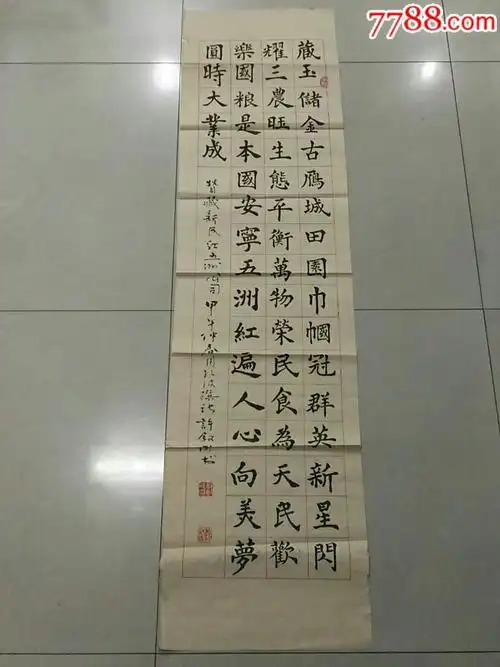 7788.com
藏玉儲金古雁城田園巾幗冠群英新星閃
耀三農旺生態平衡萬物榮民食為天民歡
樂國粮是本國安寧五洲紅遍人心向美夢
圓時大業成
藏新民红五洲公司 甲午仲春月